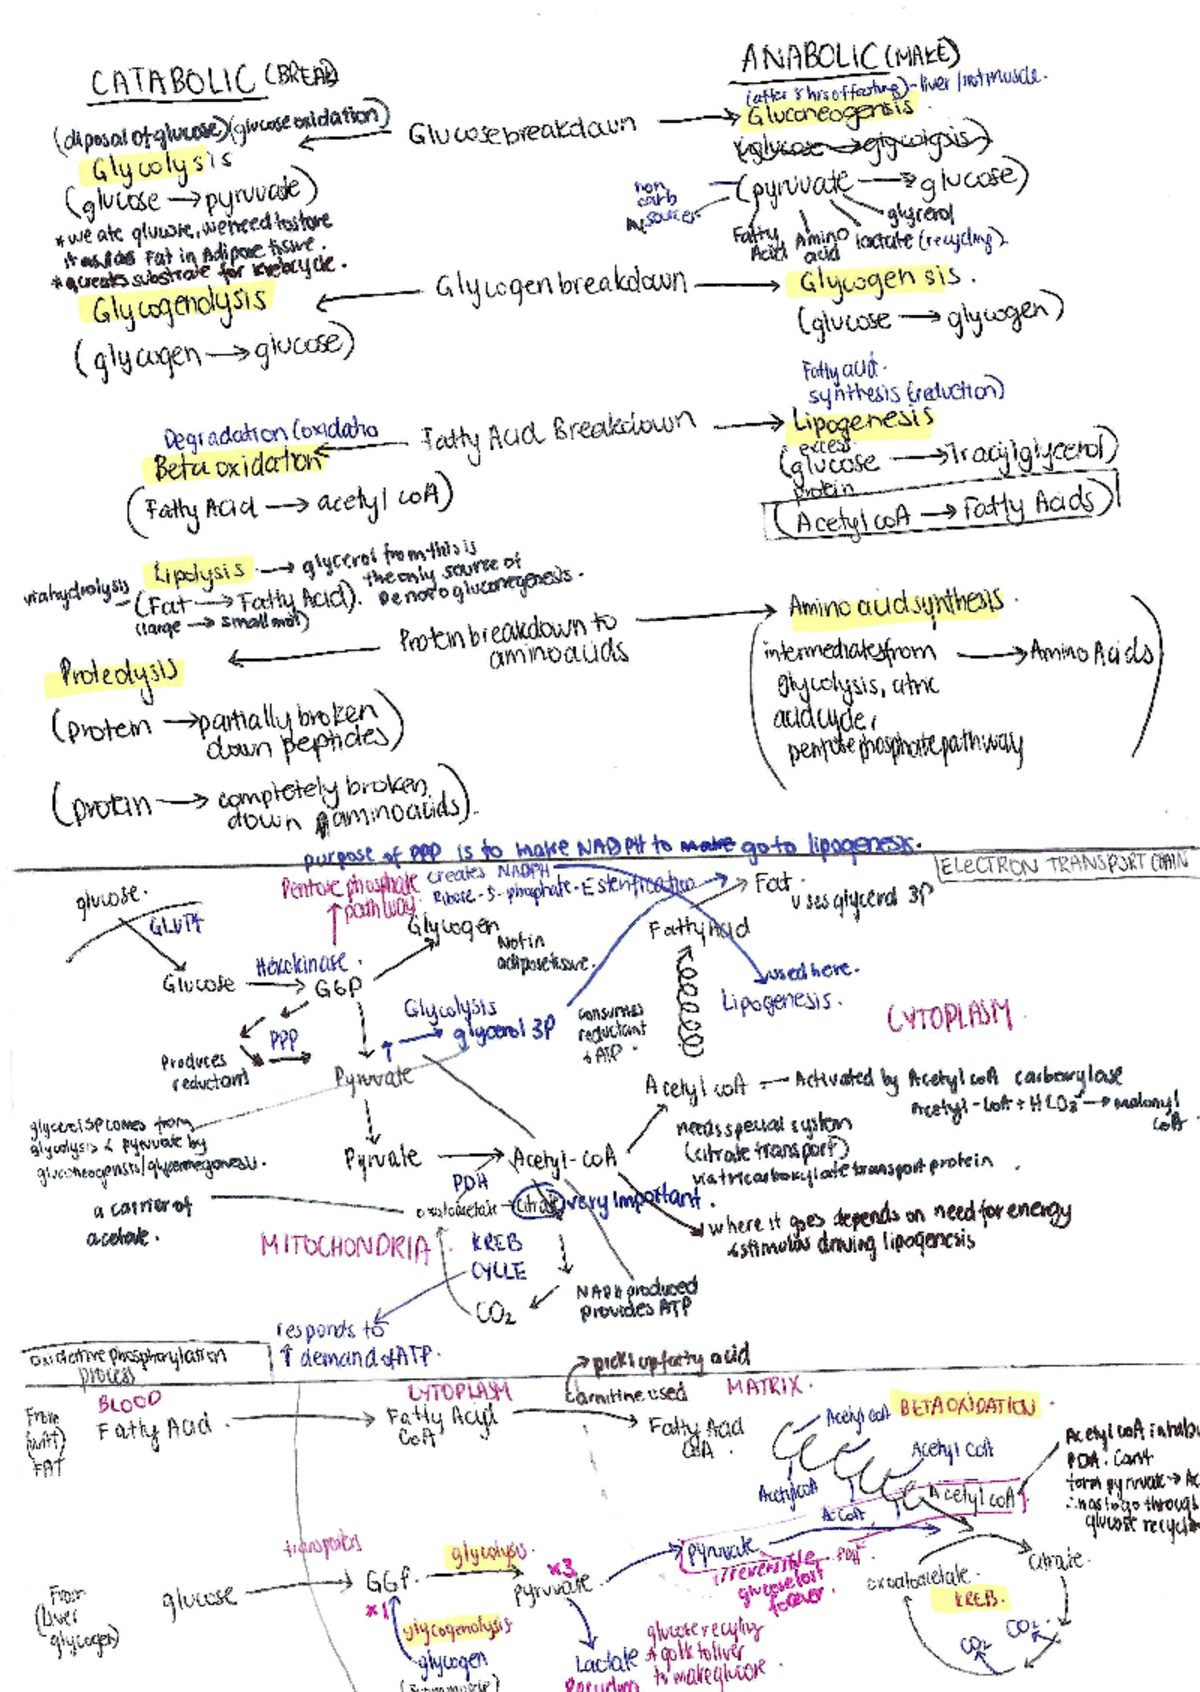 CATABOLIC (BREAK)
ANABOLIC (MAKE)
(after 8 hrs of fasting) - liver / not muscle.
(diposal of glucose) (glucose oxidation)
Glucose breakdown
Gluconeogensis
Glycolysis
(glucose → glycolysis)
(glucose → pyruvate)
(pyruvate → glucose)
non
carb
sources
* we ate glucose, we need to store
it as fat in Adipose tissue.
* creates substrate for krebcycle.
Fatty
Acid
Amino
acid
lactate (recycling)
glycerol
Glycogen breakdown
Glycogensis.
Glycogenolysis
(glucose → glycogen)
(glycogen → glucose)
Fatty acid.
synthesis (reduction)
Degradation (oxidatio
Fatty Acid Breakdown
Lipogenesis
Beta oxidation
excess
(glucose → Tracylglycerol)
protein
(Fatty Acid → acetyl coA)
(Acetyl coA → Fatty Acids)
via hydrolysis
Lipolysis → glycerol from this is
the only source of
denovo gluconegenesis.
(Fat → Fatty Acid).
(large → small mol)
Protein breakdown to
aminoacids
Amino acid synthesis.
Proteolysis
intermediates from
glycolysis, citric
acid cycle,
pentose phosphate pathway
→ Amino Acids
(protein → partially broken
down peptides)
(protein → completely broken
down aminoacids).
purpose of PPP is to make NADPH to make go to lipogenesis.
ELECTRON TRANSPORT CHAIN
glucose.
GLUT4
Pentose phosphate
pathway.
creates NADPH
Ribose-5-phosphate
Esterification
Fat.
uses glycerol 3P
Glycogen
Not in
adipose tissue.
Fatty Acid
Hexokinase.
Glucose → G6P
used here.
Lipogenesis.
CYTOPLASM
Glycolysis
glycerol 3P
consumes
reductant
+ ATP.
PPP
Produces
reductant
Pyruvate
Acetyl coA - Activated by Acetyl coA carboxylase
Acetyl-coA + HCO3⁻ → malonyl
coA.
glycerol 3P comes from
glycolysis & pyruvate by
needs special system
(citrate transport)
via tricarboxylate transport protein
Pyrvate → Acetyl-coA
PDH
a carrier of
acetate.
oxaloacetate → citrate very important.
where it goes depends on need for energy
& stimulus driving lipogenesis
MITOCHONDRIA
KREB
CYCLE
CO2
NADH produced
provides ATP
responds to
↑ demand of ATP.
oxidative phosphorylation
process
picks up fatty acid
carnitine used
BLOOD
CYTOPLASM
MATRIX.
From
FAT
Fatty Acid
Fatty Acid
CoA
Fatty Acid
CoA.
Acetyl coA
BETA OXIDATION
Acetyl coA
Acetyl coA
AcoA
Acetyl coA
PDA. Cant
form pyruvate → Ac
∴ has to go through
glucose recyclin
transporters
glycolysis.
From
(Liver
glycogen)
glucose
G6P.
x1
x3
pyruvate
pyruvate
irreversible
glucose lost
forever.
PDH
oxaloacetate.
citrate.
KREB.
CO2
CO2
glycogenolysis
glycogen
Lactate
glucose recycling
& go to liver
to make glucose.